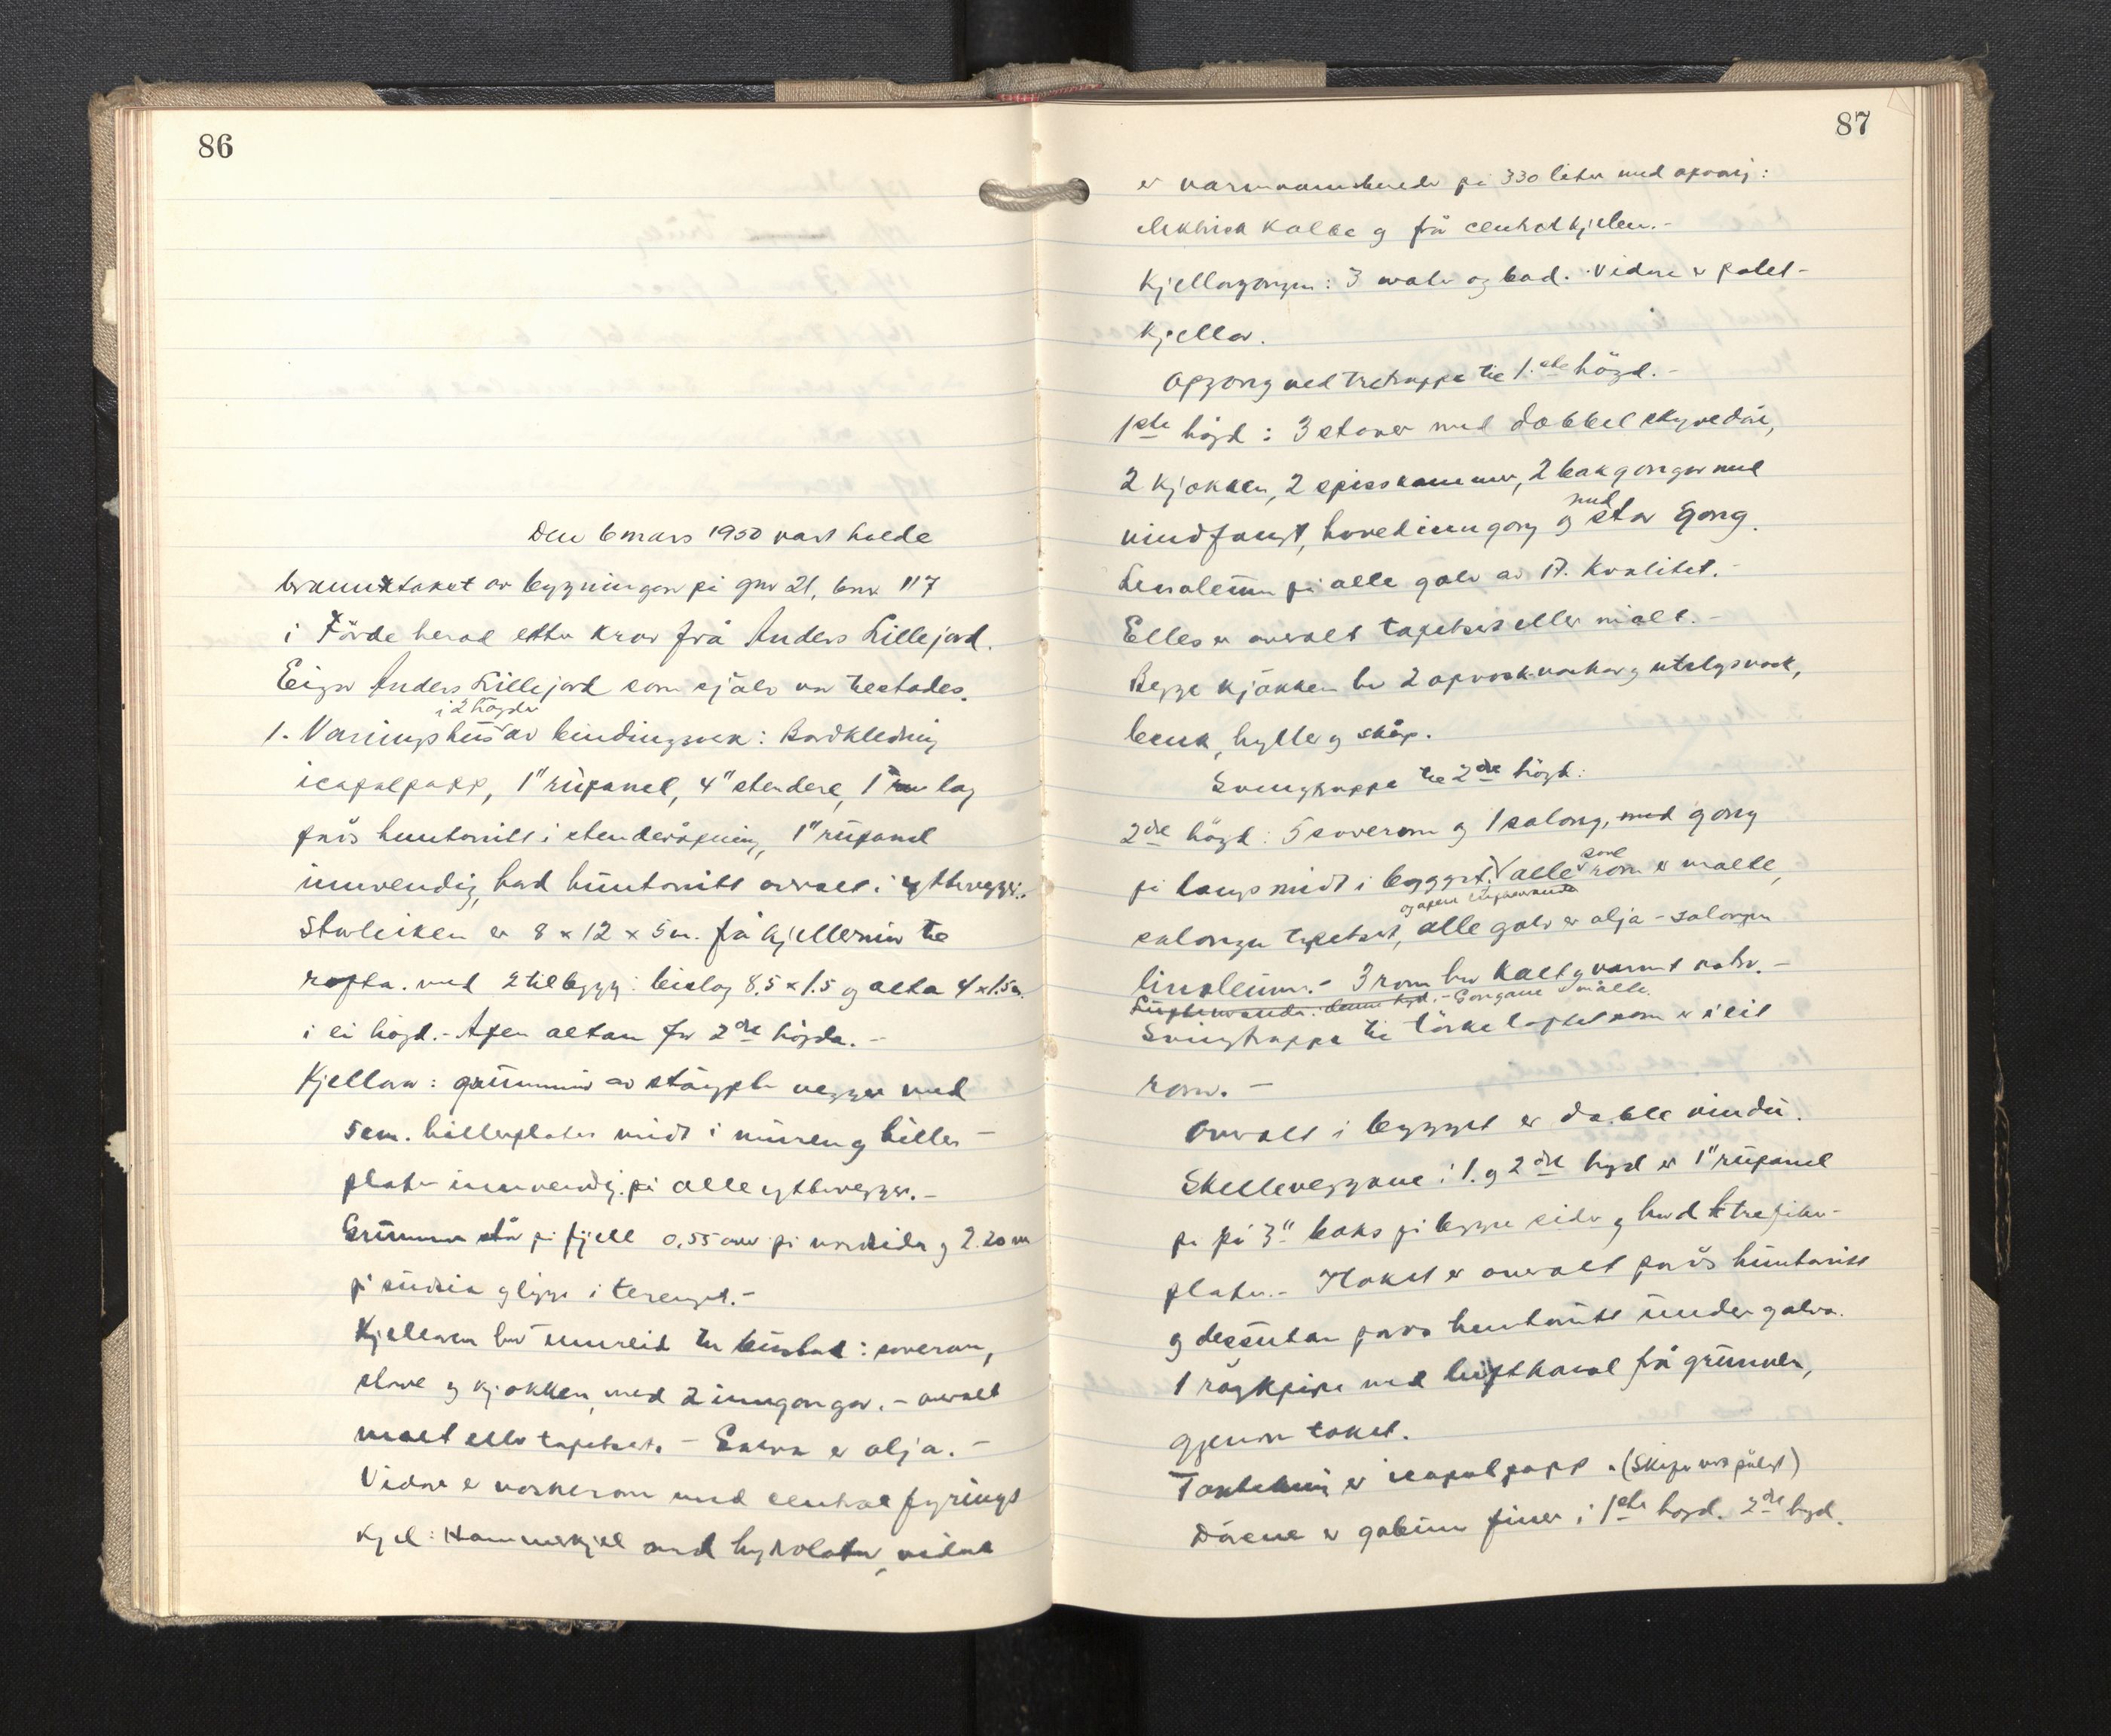 86
Den 6 mars 1950 vart halde
branntaket av bygningen på gnr 21, bnr. 117
i Förde herad etter krav frå Anders Lillejord.
Eigar Anders Lillejord som sjölv var tilstades.
i 2 högder
1. Vaningshus av bindingsverk: Bordkledning
icapalpapp, 1" rupanel, 4" stendere, 1" lag
porös huntonitt i stenderåpning, 1" rupanel
innvendig, hard huntonitt overalt i yttervegger.
Storleiken er 8 x 12 x 5 m. frå kjellermur til
rafta. med 2 tilbygg: bislag 8,5 x 1.5 og alta 4 x 1.5 m.
i ei högd. - Open altan for 2dre högda. -
Kjellar: grunnmur av stöypte vegger med
5 cm. hillerplater midt i muren og hiller-
plater innvendig på alle yttervegger. -
Grunnen står på fjell 0,55 over på nordsida og 2.20 m
på sudsia og ligge i terenget. -
Kjellaren har innreid til bustad: soverom,
stove og kjökken, med 2 inngongar. - overalt
malt eller tapetsert. - Golva er olja. -
Vidare er vaskerom med central fyrings
kjel: Hammerkjel med hydrolator, vidare
87
er varmvannsbereder på 330 liter med opvarming:
elektrisk kolbe og frå centralkjelen. -
Kjellargongen: 3 mater og bad. Vidare er potet-
kjellar.
Opgong ved tretrappa til 1.ste högd. -
1ste högd: 3 stover med dobbel skyvedör,
2 kjökken, 2 spisskammer, 2 bakgongar med
med
vindfangt, hovedinngong og stor gong.
Linoleum på alle golv av 1. kvalitet. -
Elles er overalt tapetsert eller målt. -
Begge kjökken har 2 opvaskvaskar og utslagsvask,
benk, hylle og skåp.
Svingtrappe til 2dre högd:
2dre högd: 5 soverom og 1 salong, med gong
sove
på langs midt i bygget. alle rom er malte,
salongen tapetsert, alle golv er olja - salongen
linoleum. - 3 rom har kalt og varmt vatn. -
Gongane målte.
Svingtrappe til törkeloftet som er i eit
rom. -
Overalt i bygget er doble vindu.
Skilleveggane i 1. og 2dre högd er 1" rupanel
på 3" boks på begge sider og hard trefiber-
plater. - Taket er overalt porös huntonitt
og dessutan porös huntonitt under golva.
1 röykpipe med luftkanal frå grunnen,
gjenom taket.
Taktekkinj er icapalpapp. (Skifer vert pålagt)
Dörene er gabun finer i 1ste högd. 2dre högd.